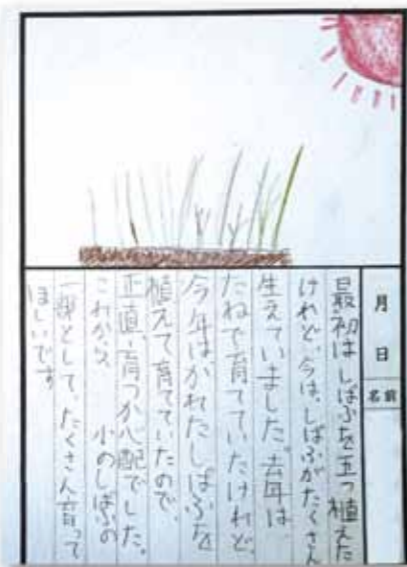 月 日
名前
最初はしばふを五つ植えた
けれど、今は、しばふがたくさん
生えていました。去年は、
たねで育てていたけれど、
今年はかれたしばふを
植えて育てていたので、
正直、育つか心配でした。
これから、 小のしばふの
一部として、たくさん育って
ほしいです